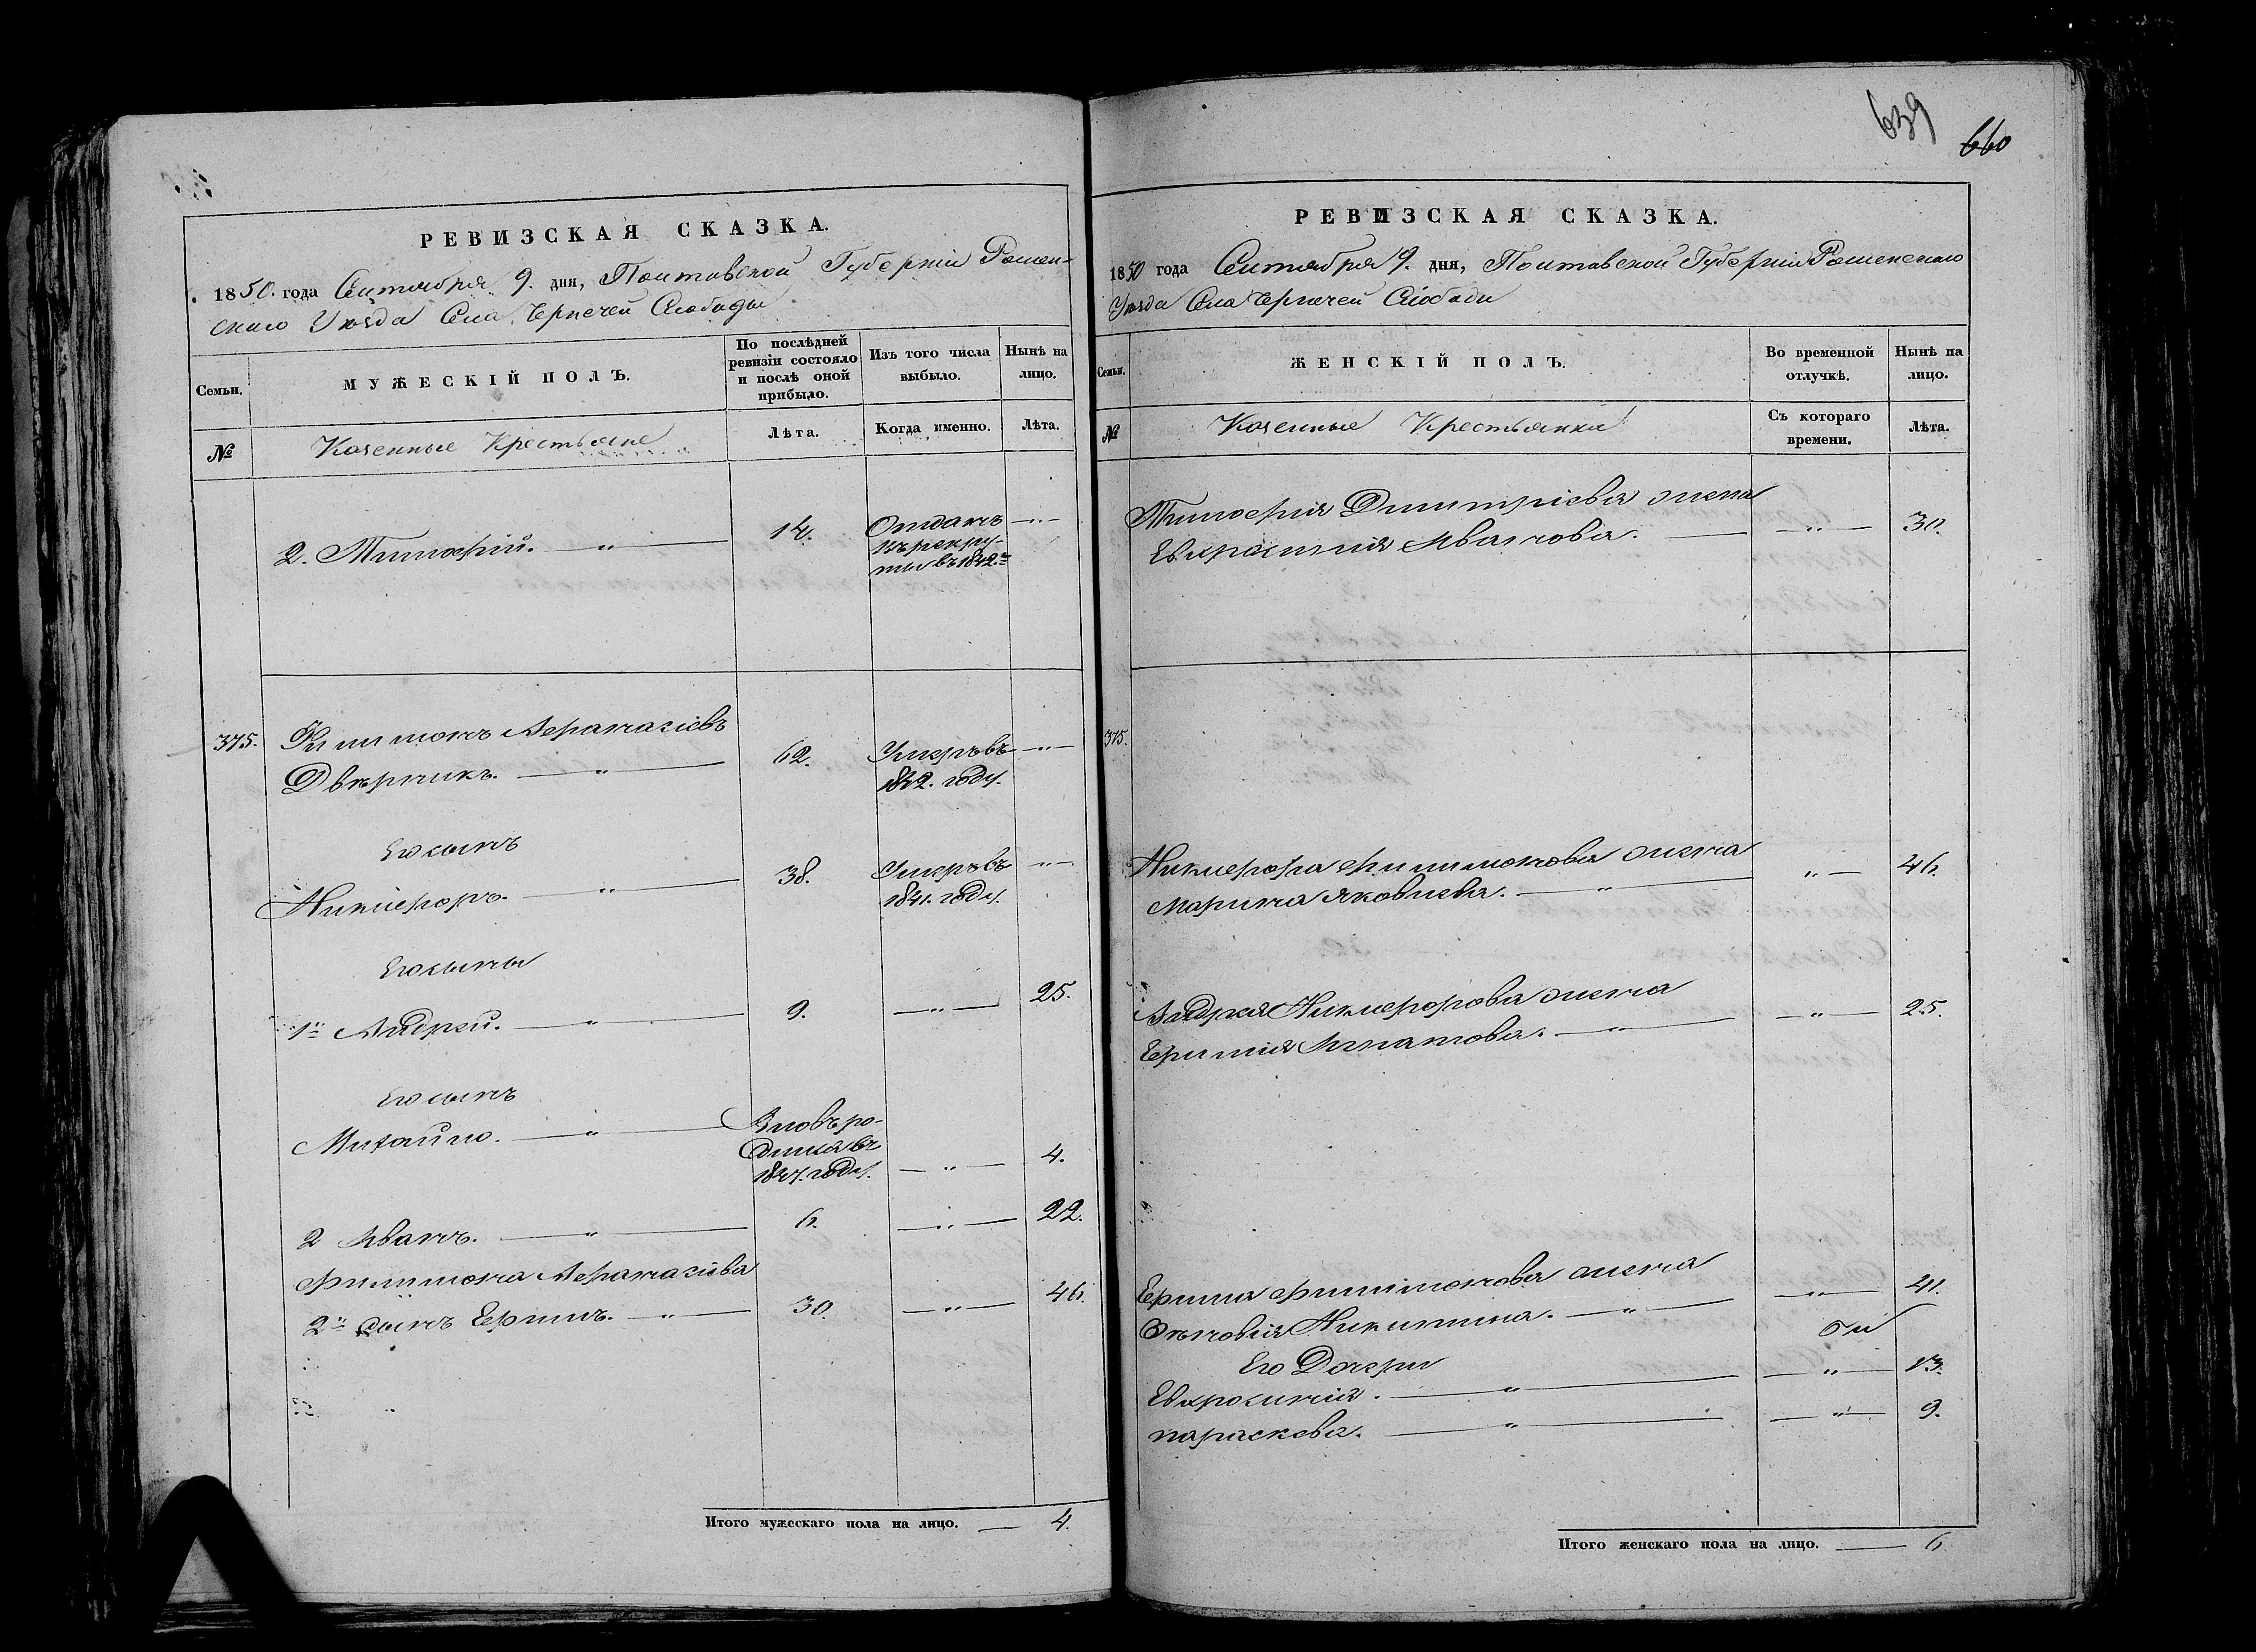 РЕВИЗСКАЯ СКАЗКА.
1850. года Сентября 9. дня, Полтавской Губерніи Ромен-
скаго Уѣзда Села Черпечей Слободы
Семьи.
МУЖЕСКІЙ ПОЛЪ.
По послѣдней
ревизіи состояло
и послѣ оной
прибыло.
Изъ того числа
выбыло.
Нынѣ на
лицо.
№
Казенные Крестьяне
Лѣта.
Когда именно.
Лѣта.
2. Тимофій. — " — 14. Отданъ — " —
въ рекру-
ты въ 1842.
375. Филимонъ Афанасіевъ
Двѣрникъ. — " — 62. Умеръ въ — " —
1842. году.
Его сынъ
Никифоръ. — " — 38. Умеръ въ — " —
1841. году.
Его сыны
1й Андрей. — " — 9. — " — 25.
Его сынъ
Михайло. — " — Вновь ро-
дился въ
1847. году. — " — 4.
2 Иванъ. — " — 6. — " — 22.
Филимона Афанасіева
2й сынъ Ефимъ. — " — 30. — " — 46.
Итого мужескаго пола на лицо. — 4.
639
660
РЕВИЗСКАЯ СКАЗКА.
1850 года Сентября 9. дня, Полтавской Губерніи Роменскаго
Уѣзда Села Черпечей Слободы
Семьи.
ЖЕНСКІЙ ПОЛЪ.
Во временной
отлучкѣ.
Нынѣ на
лицо.
№
Казенные Крестьянки
Съ котораго
времени.
Лѣта.
Тимофія Дмитріева жена
Евдокія Иванова. — " — 30.
375.
Никифора Филимонова жена
Марина Яковлева. — " — " — 46.
Андрея Никифорова жена
Игнатова. — " — " — 25.
Ефима Филимонова жена
Никитина. — " — " — 41.
Его Дочери
Евфросинія. — " — " — 13.
Параскева. — " — " — 9.
Итого женскаго пола на лицо. — 6